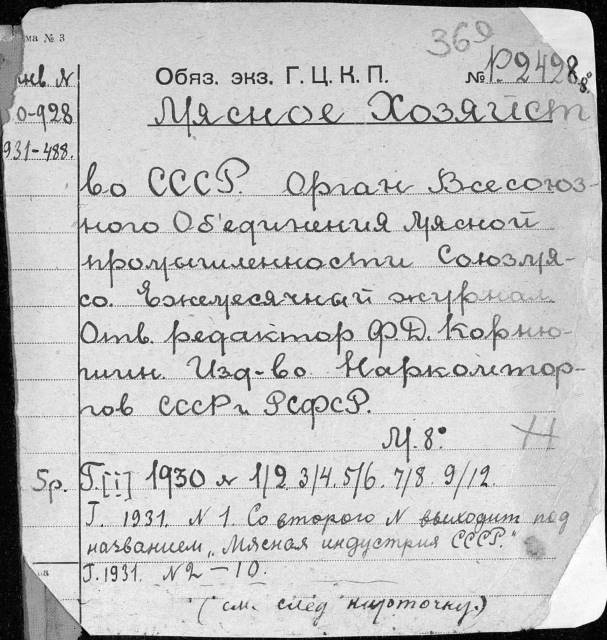 ма № 3
369
инв N
Обяз. экз. Г. Ц. К. П. № P.2498
8°
0-928
Мясное Хозяйст
931-488.
во СССР. Орган Всесоюз-
ного Об'единения Мясной
промышленности Союзмя-
со. Ежемесячный журнал
Отв. редактор Ф.Д. Корню-
шин. Изд-во Наркомтор-
гов СССР и РСФСР.
М. 8°
5р. Г.[I] 1930 N 1/2. 3/4. 5/6. 7/8. 9/12.
Г. 1931. N 1. Со второго N выходит под
названием „Мясная индустрия СССР."
Г. 1931. N 2-10.
(см. след карточку.)